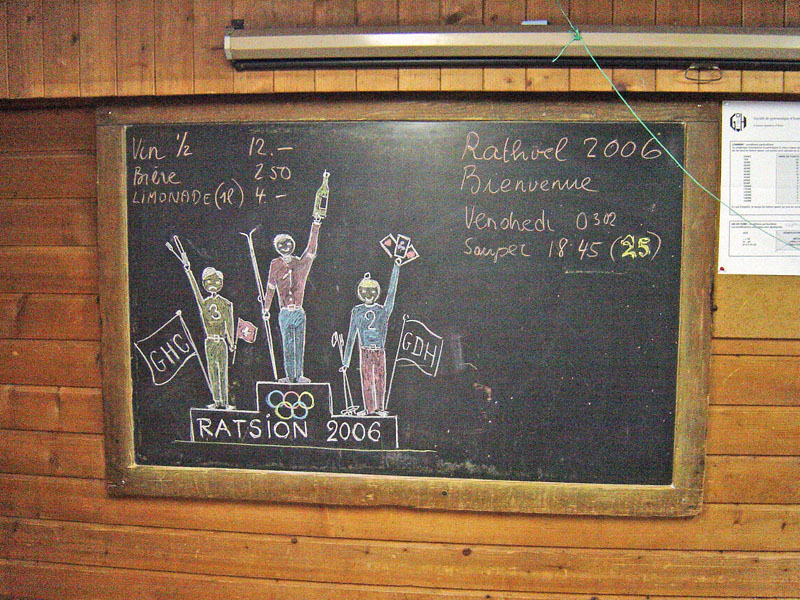 Vin 1/2 12.—
Bière 2 50
LIMONADE (1l) 4.—
Rathvel 2006
Bienvenue
Vendredi 03 02
Souper 18 45 (25)
1
3
2
GHG
GDH
RATSION 2006